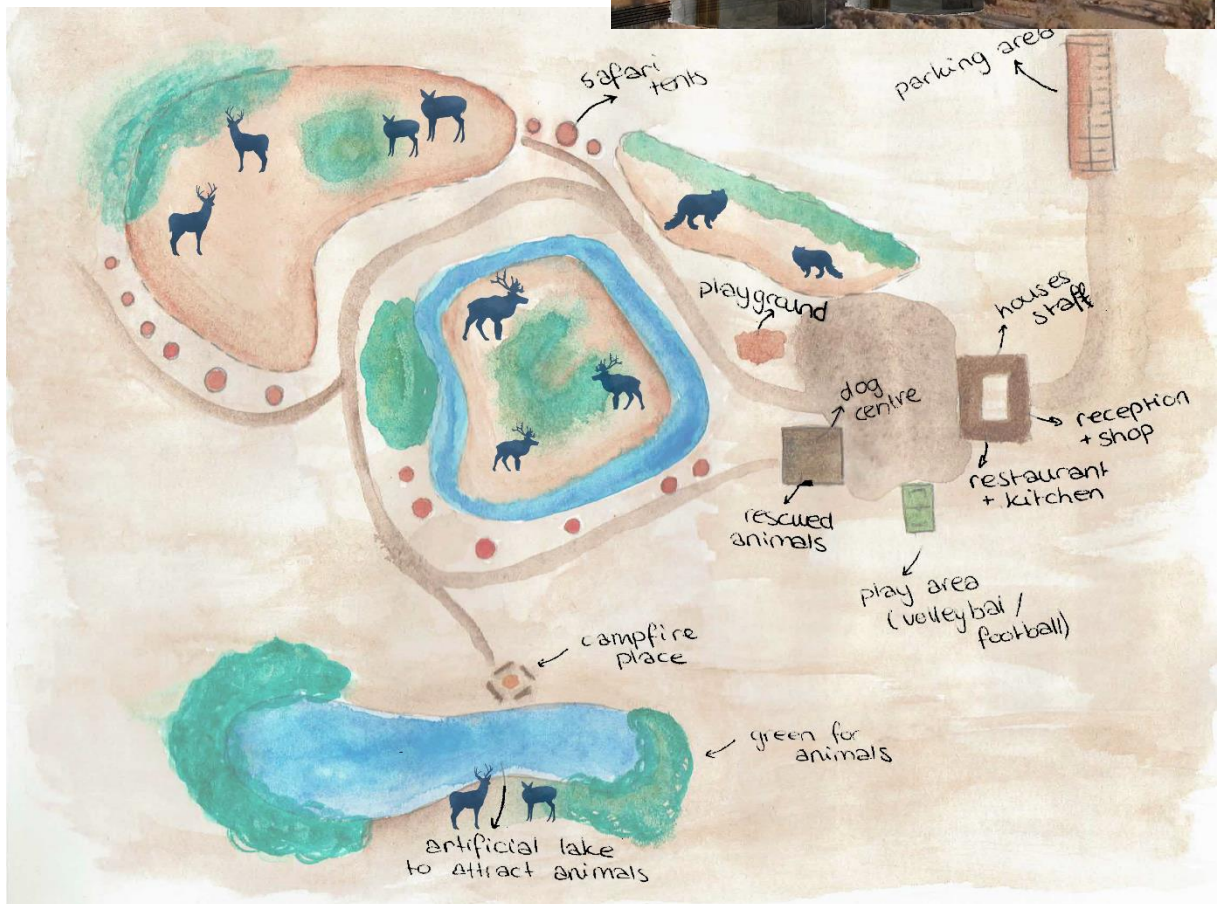 parking area
safari
tents
playground
houses
staff
dog
centre
reception
+ shop
restaurant
+ kitchen
rescued
animals
play area
(volleybal /
football)
campfire
place
green for
animals
artificial lake
to attract animals